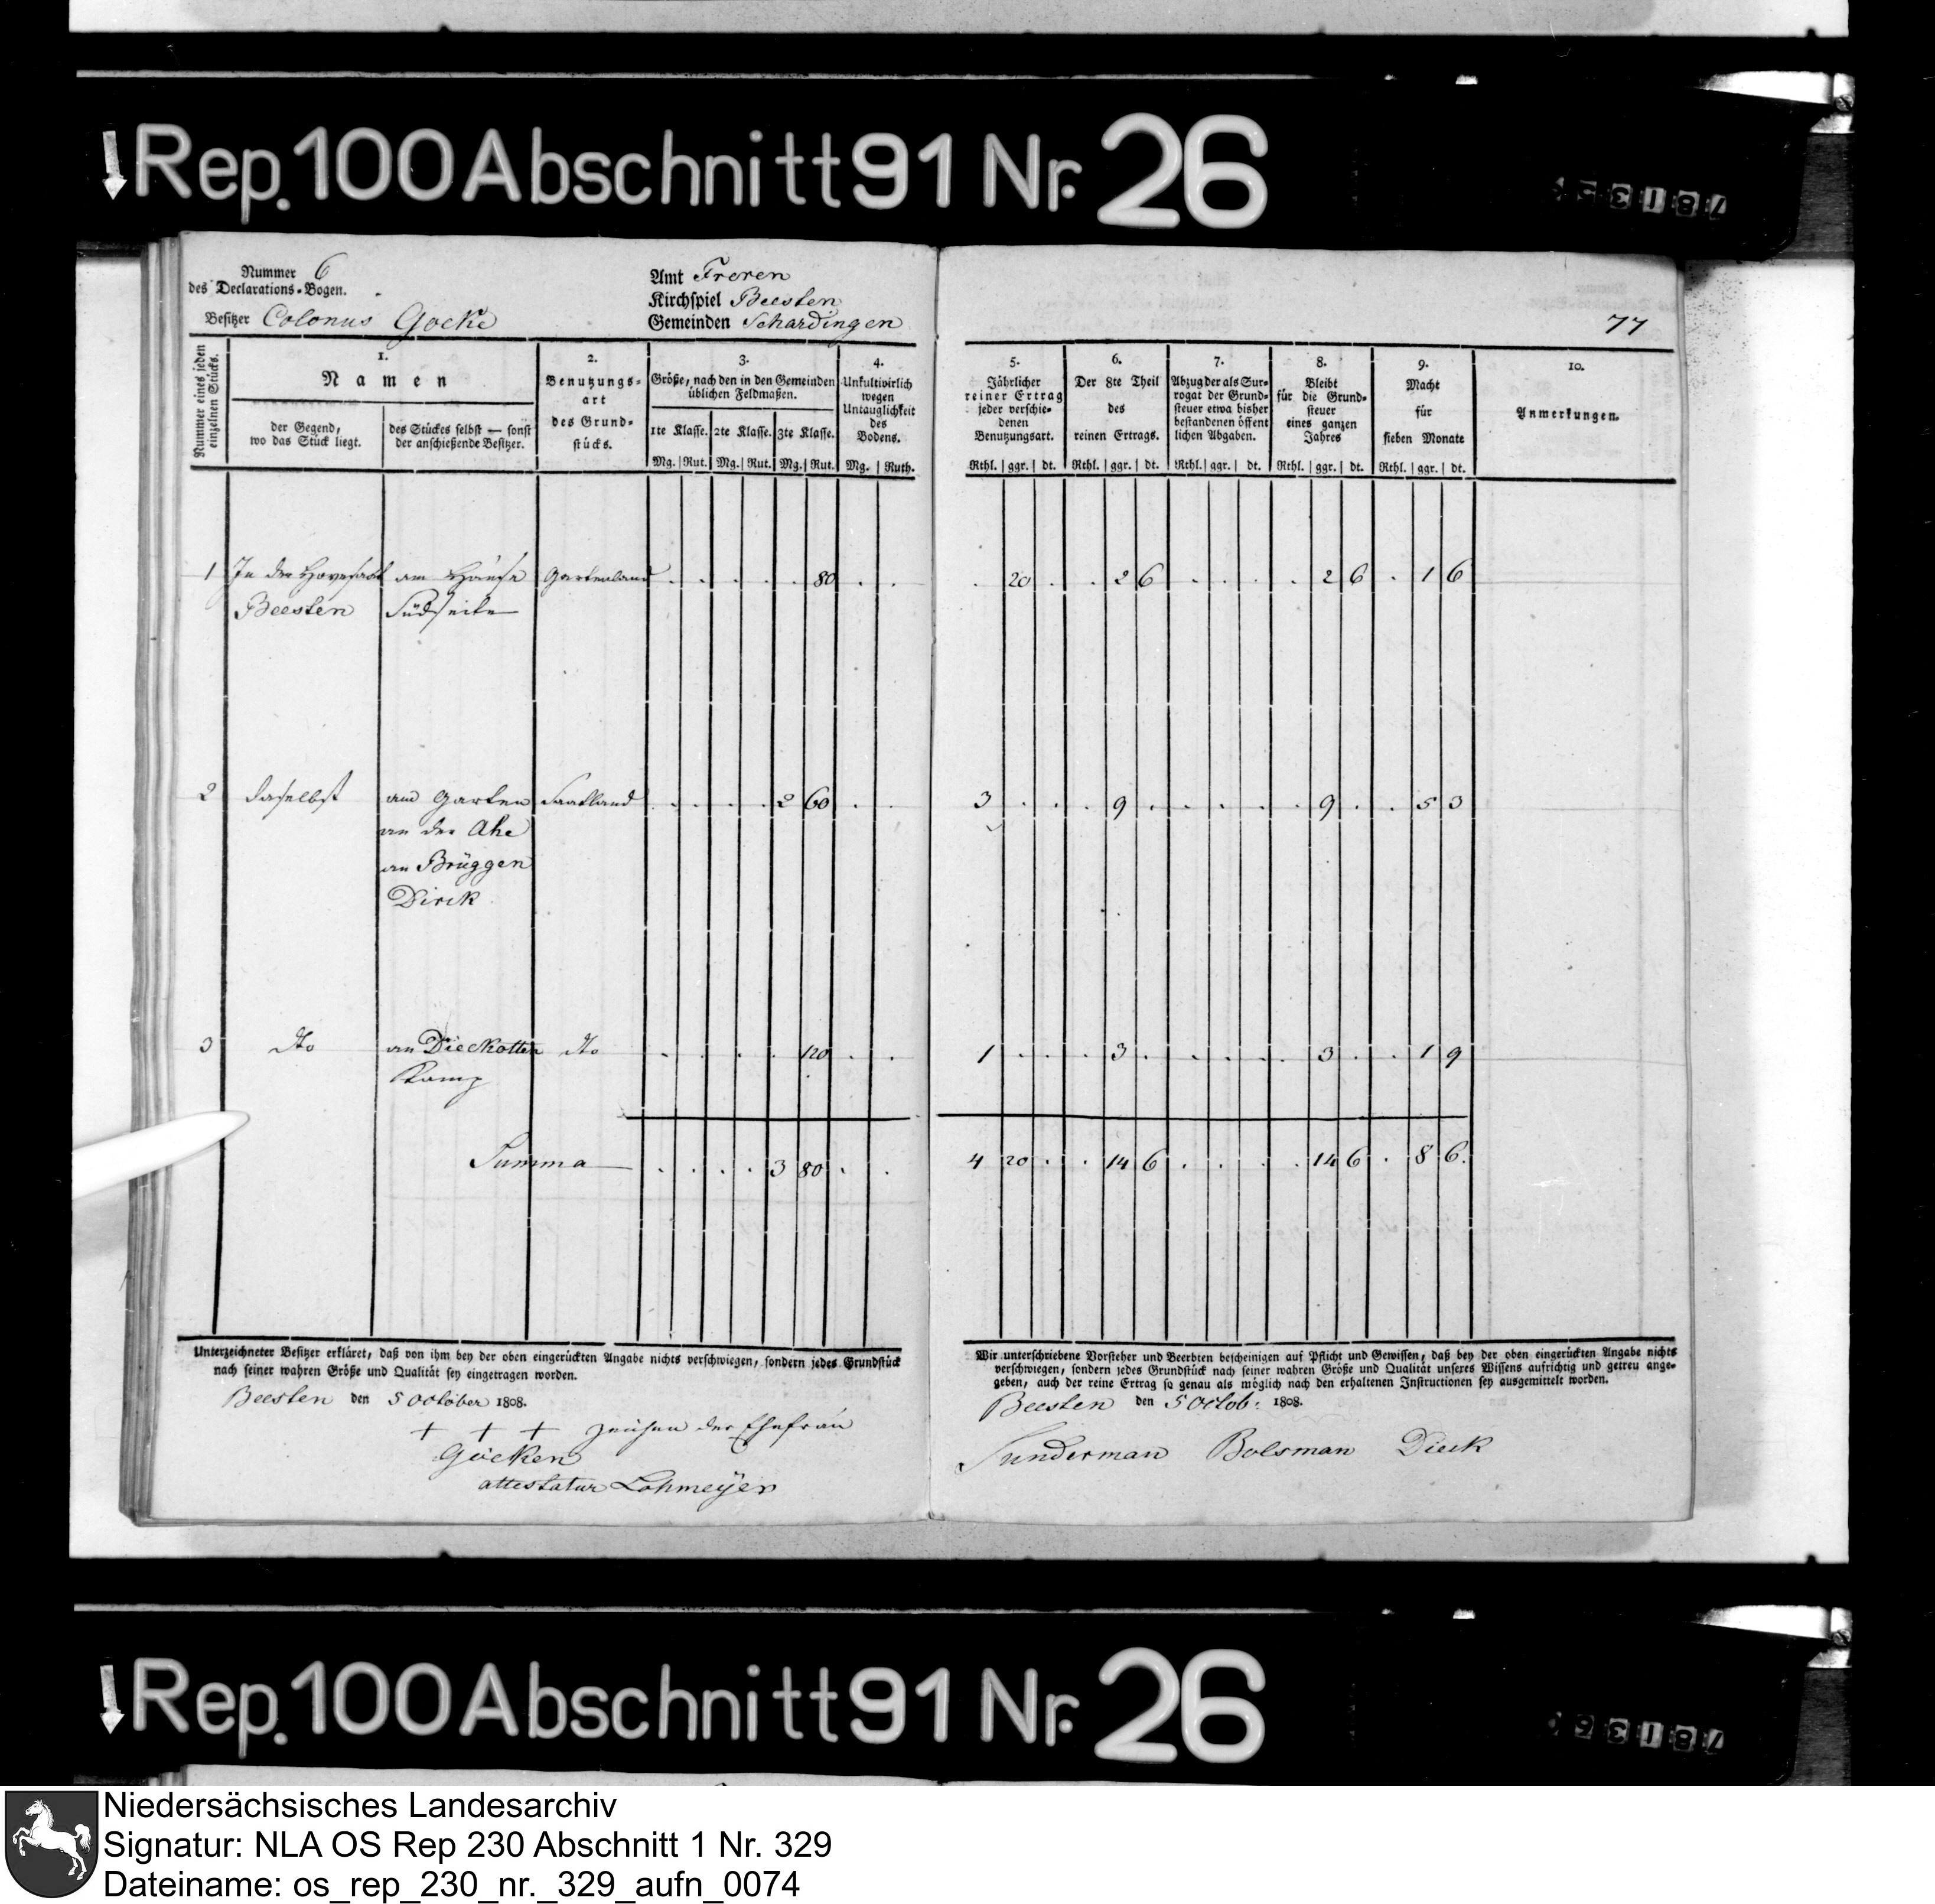 Rep. 100 Abschnitt 91 Nr. 26
Nummer 6
des Declarations-Bogen.
Besitzer Colonus Gocke
Amt Freren
Kirchspiel Beesten
Gemeinden Schardingen
77
Nummer eines jeden einzelnen Stücks.
1.
Namen
der Gegend, wo das Stück liegt.
des Stückes selbst — sonst der anschießende Besitzer.
2.
Benutzungs-art des Grund-stücks.
3.
Größe, nach den in den Gemeinden üblichen Feldmaßen.
1te Klasse. 2te Klasse. 3te Klasse.
Mg. Rut. Mg. Rut. Mg. Rut.
4.
Unkultivirlich wegen Untauglichkeit des Bodens.
Mg. Ruth.
5.
Jährlicher reiner Ertrag jeder verschie-denen Benutzungsart.
Rthl. ggr. dt.
6.
Der 8te Theil des reinen Ertrags.
Rthl. ggr. dt.
7.
Abzug der als Sur-rogat der Grund-steuer etwa bisher bestandenen öffent lichen Abgaben.
Rthl. ggr. dt.
8.
Bleibt für die Grund-steuer eines ganzen Jahres
Rthl. ggr. dt.
9.
Macht für sieben Monate
Rthl. ggr. dt.
10.
Anmerkungen.
1 In der am Hause Gartenland . . . . . 80 . . . 20 . . 2 6 . . . . 2 6 . 1 6
Beesten Südseite
2 daselbst am Garten Saatland . . . . 2 60 . . 3 . . . 9 . . . . . 9 . . 5 3
an der Ahe
an Brüggen
Dirck
3 dto an Dieckotten dto . . . . . 120 . . 1 . . . 3 . . . . . 3 . . 1 9
Kamp
Summa . . . . 3 80 . . 4 20 . . 14 6 . . . . 14 6 . 8 6.
Unterzeichneter Besitzer erkläret, daß von ihm bey der oben eingerückten Angabe nichts verschwiegen, sondern jedes Grundstück
nach seiner wahren Größe und Qualität sey eingetragen worden.
Beesten den 5 October 1808.
+ + + zeichen der Ehefrau
Göcken
attestatur Lohmeyer
Wir unterschriebene Vorsteher und Beerbten bescheinigen auf Pflicht und Gewissen, daß bey der oben eingerückten Angabe nichts
verschwiegen, sondern jedes Grundstück nach seiner wahren Größe und Qualität unseres Wissens aufrichtig und getreu ange-
geben, auch der reine Ertrag so genau als möglich nach den erhaltenen Instructionen sey ausgemittelt worden.
Beesten den 5 Octob: 1808.
Sunderman Bolsman Dieck
Rep. 100 Abschnitt 91 Nr. 26
Niedersächsisches Landesarchiv
Signatur: NLA OS Rep 230 Abschnitt 1 Nr. 329
Dateiname: os_rep_230_nr._329_aufn_0074